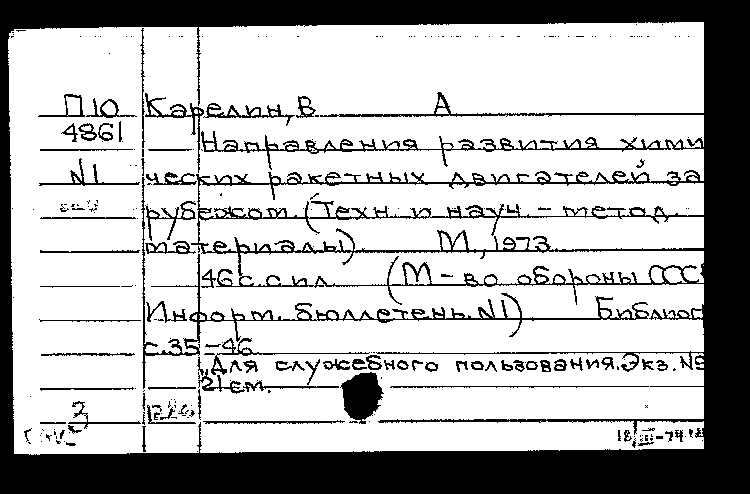 П10 Карелин, В А
4861 Направления развития хими
№1 ческих ракетных двигателей за
рубежом. (Техн. и науч. - метод.
материалы). М., 1973
46 с. с ил. (М-во обороны СССР
Информ. бюллетень. №1). Библиог
с. 35-46
"Для служебного пользования. Экз. №
21 см.
3
18/III-74